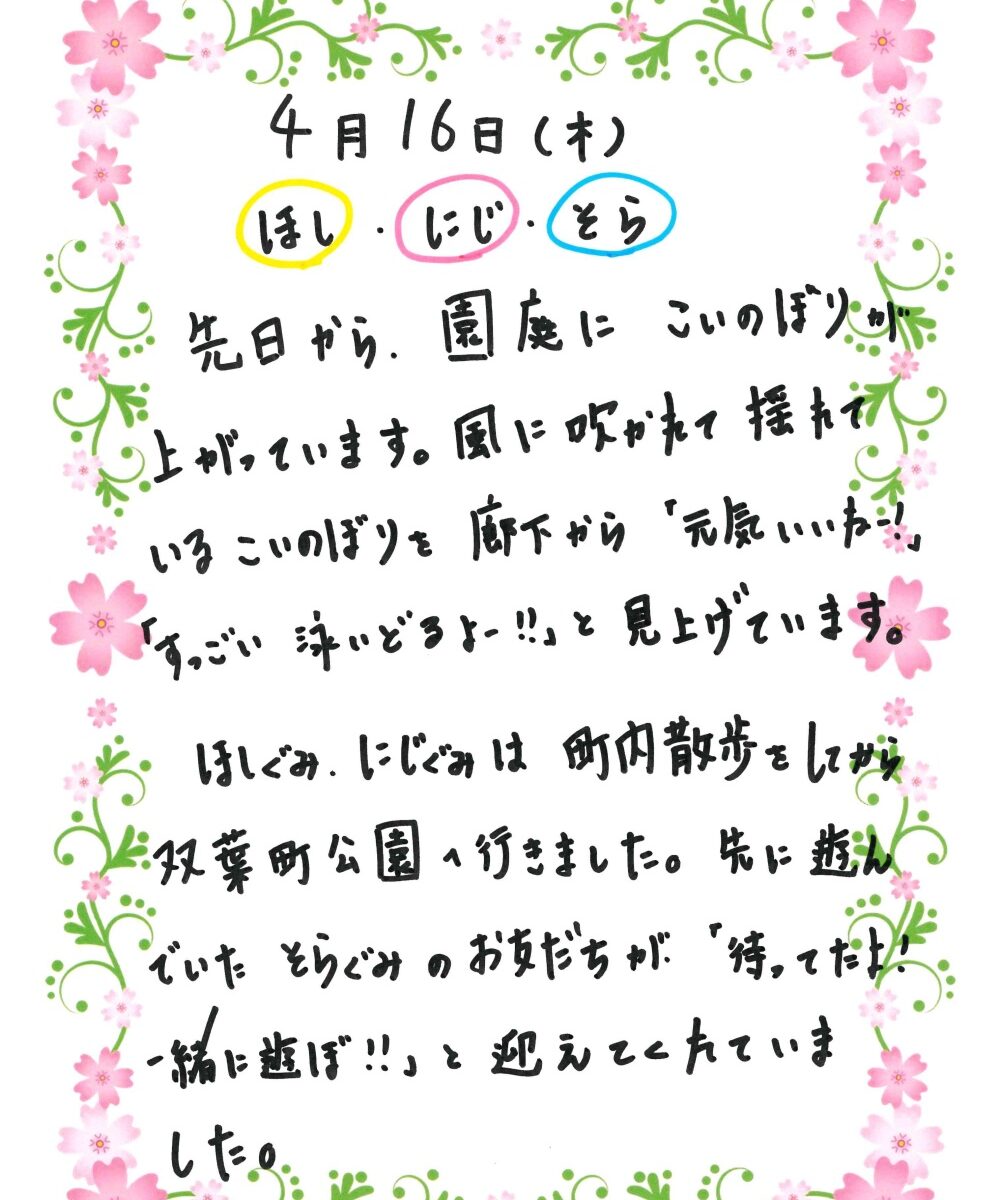 4月16日(木)
ほし・にじ・そら
先日から、園庭に こいのぼりが
上がっています。風に吹かれて 揺れて
いるこいのぼりを 廊下から 「元気いいねー!」
「すっごい 泳いどるよー!!」と 見上げています。
ほしぐみ、にじぐみは 町内散歩をしてから
双葉町公園へ行きました。先に遊ん
でいた そらぐみのお友だちが、「待ってたよ!
一緒に遊ぼ!!」と 迎えてくれていま
した。